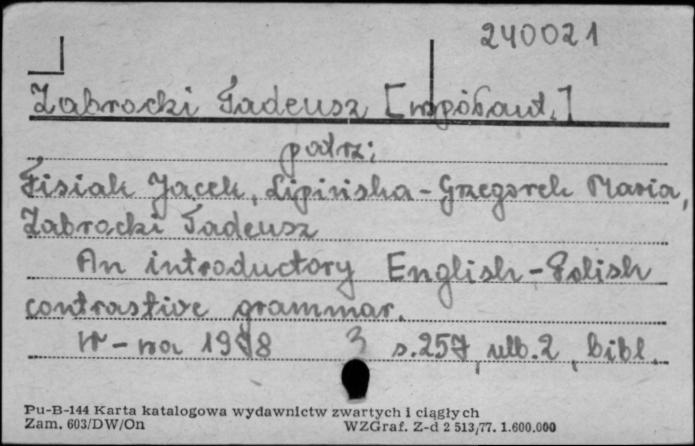 240021
Zabrocki Tadeusz [współaut.]
patrz:
Fisiak Jacek, Lipińska-Grzegorek Maria,
Zabrocki Tadeusz
An introductory English-Polish
contrastive grammar.
W-wa 1978 3 s.257, nlb.2, bibl.
Pu-B-144 Karta katalogowa wydawnictw zwartych i ciągłych
Zam. 603/DW/On WZGraf. Z-d 2 513/77. 1.600.000